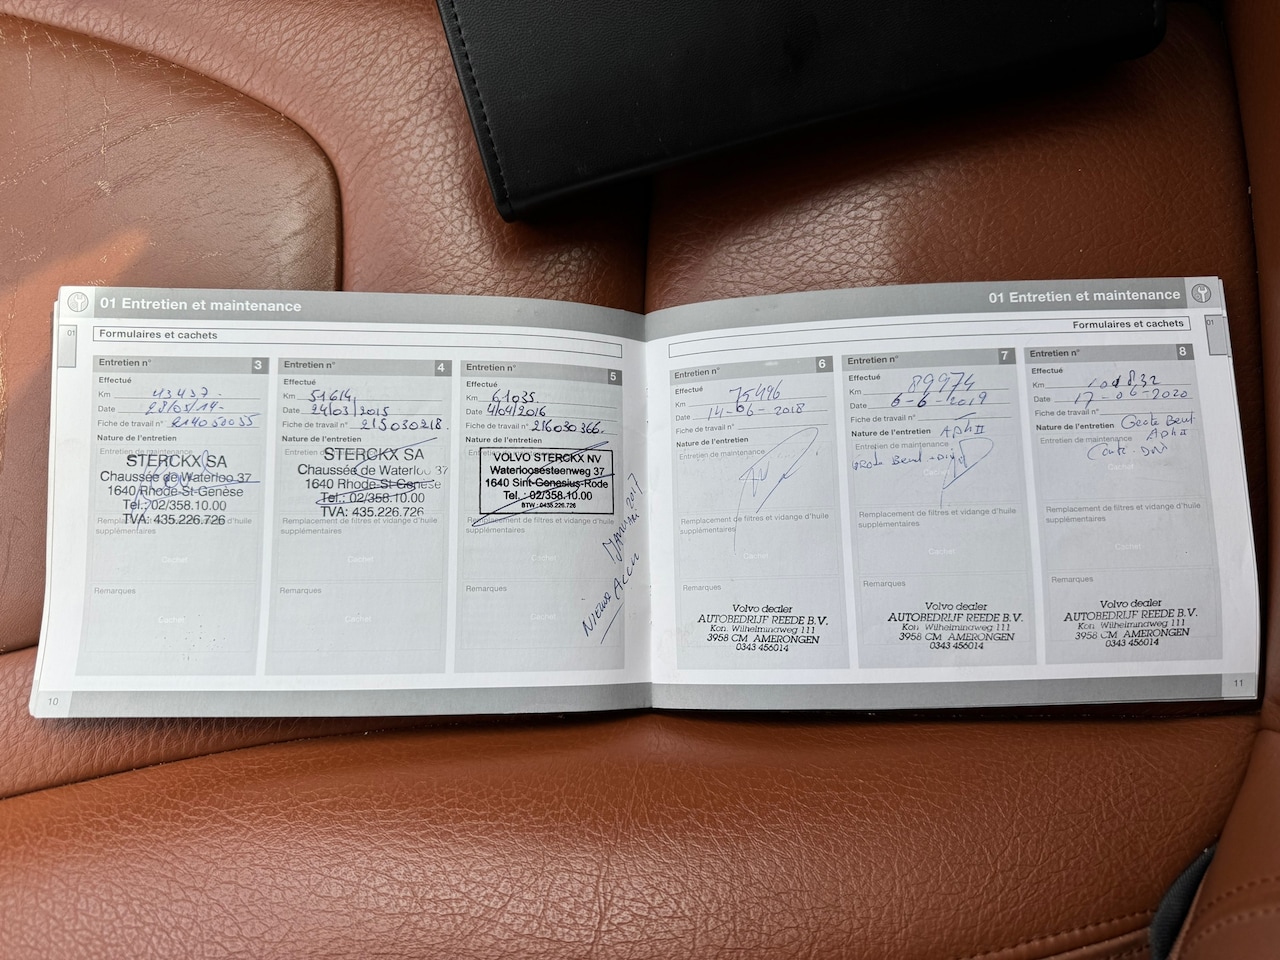 01 Entretien et maintenance
01
Formulaires et cachets
Entretien n° 3
Effectué
Km 43437
Date 28/05/14-
Fiche de travail n° 214050055
Nature de l'entretien
Entretien de maintenance
STERCKX SA
Chaussée de Waterloo 37
1640 Rhode-St-Genèse
Tel.: 02/358.10.00
TVA: 435.226.726
Remplacement de filtres et vidange d'huile
supplémentaires
Cachet
Remarques
Cachet
Entretien n° 4
Effectué
Km 51614
Date 24/03/2015
Fiche de travail n° 215030218.
Nature de l'entretien
STERCKX SA
Chaussée de Waterloo 37
1640 Rhode-St-Genèse
Tel.: 02/358.10.00
TVA: 435.226.726
Remplacement de filtres et vidange d'huile
supplémentaires
Cachet
Remarques
Cachet
Entretien n° 5
Effectué
Km 61035
Date 4/04/2016
Fiche de travail n° 216030366.
Nature de l'entretien
VOLVO STERCKX NV
Waterloosesteenweg 37
1640 Sint-Genesius-Rode
Tel.: 02/358.10.00
BTW: 0435.226.726
Remplacement de filtres et vidange d'huile
supplémentaires
Cachet
Remarques
Cachet
Nieuwe Accu
2017
10
01 Entretien et maintenance
01
Formulaires et cachets
Entretien n° 6
Effectué
Km 75496
Date 14-06-2018
Fiche de travail n°
Nature de l'entretien
Entretien de maintenance
Remplacement de filtres et vidange d'huile
supplémentaires
Cachet
Remarques
Volvo dealer
AUTOBEDRIJF REEDE B.V.
Kon. Wilhelminaweg 111
3958 CM AMERONGEN
0343 456014
Entretien n° 7
Effectué
Km 89974
Date 6-6-2019
Fiche de travail n°
Nature de l'entretien Apk II
Entretien de maintenance
Grote Beurt
Remplacement de filtres et vidange d'huile
supplémentaires
Cachet
Remarques
Volvo dealer
AUTOBEDRIJF REEDE B.V.
Kon. Wilhelminaweg 111
3958 CM AMERONGEN
0343 456014
Entretien n° 8
Effectué
Km 101832
Date 17-06-2020
Fiche de travail n° Grote Beurt
Nature de l'entretien Apk II
Entretien de maintenance
Remplacement de filtres et vidange d'huile
supplémentaires
Cachet
Remarques
Volvo dealer
AUTOBEDRIJF REEDE B.V.
Kon. Wilhelminaweg 111
3958 CM AMERONGEN
0343 456014
11